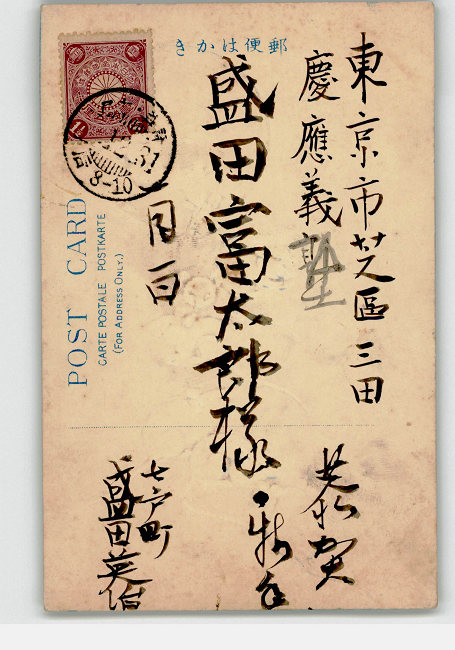 郵便はかき
東京市芝區三田
慶應義塾
盛田富太郎様
一月一日
恭賀
新年
七戸町
盛田英治
POST CARD
CARTE POSTALE POSTKARTE
(FOR ADDRESS ONLY.)
8-10